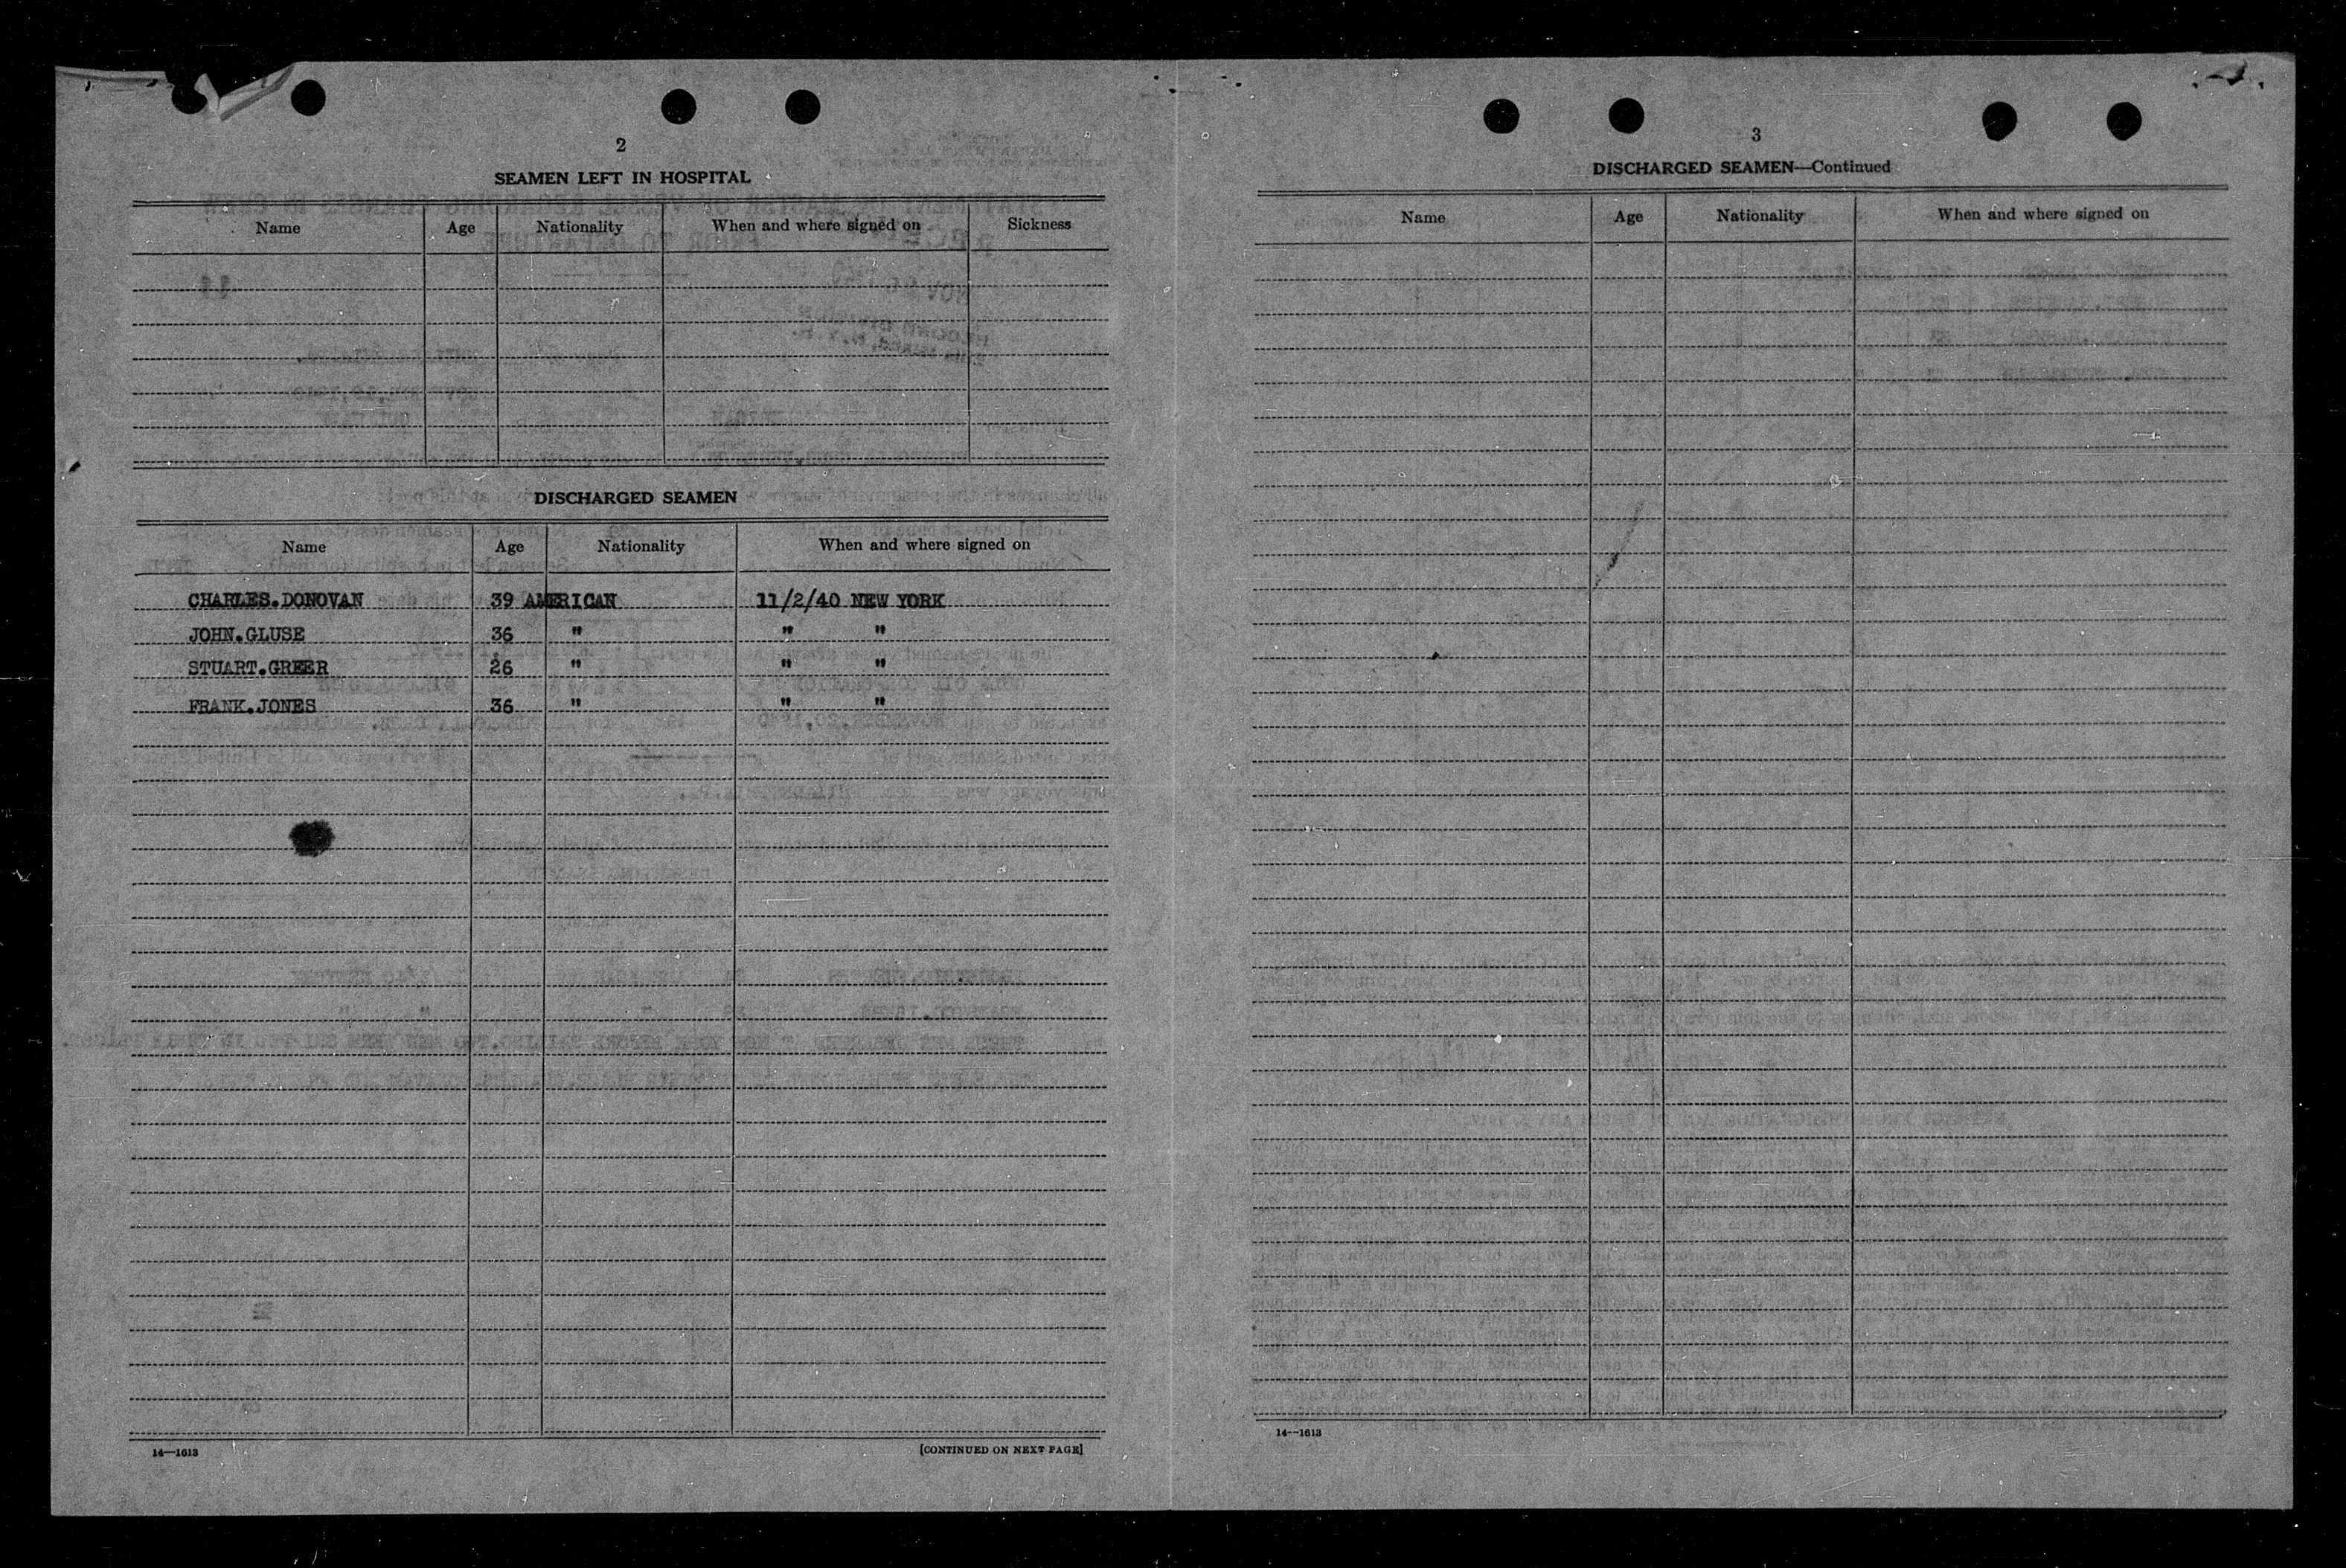 2
SEAMEN LEFT IN HOSPITAL
Name Age Nationality When and where signed on Sickness
DISCHARGED SEAMEN
Name Age Nationality When and where signed on
CHARLES.DONOVAN 39 AMERICAN 11/2/40 NEW YORK
JOHN.GLUSE 36 " " "
STUART.GREER 26 " " "
FRANK.JONES 36 " " "
14—1613 [CONTINUED ON NEXT PAGE]
3
DISCHARGED SEAMEN—Continued
Name Age Nationality When and where signed on
14—1613